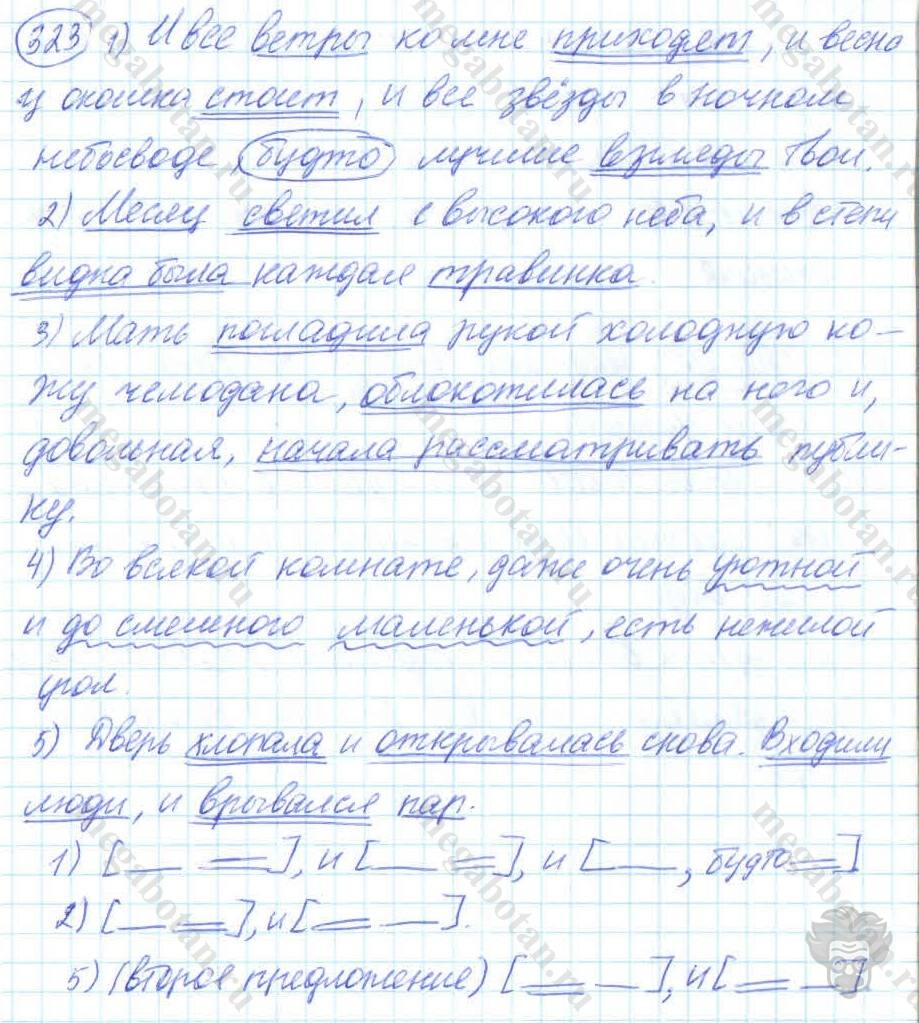 323 1) И все ветры ко мне приходят, и весна
у окошка стоит, и все звёзды в ночном
небосводе, будто лучшие взгляды твои.
2) Месяц светил с высокого неба, и в степи
видна была каждая травинка.
3) Мать погладила рукой холодную ко-
жу чемодана, облокотилась на него и,
довольная, начала рассматривать публи-
ку.
4) Во всякой комнате, даже очень уютной
и до смешного маленькой, есть нежилой
угол.
5) Дверь хлопала и открывалась снова. Входили
люди, и врывался пар.
1) [__ __], и [__ __], и [__, будто __]
2) [__ __], и [__ __].
5) (второе предложение) [__ __], и [__ __]
megabotan.ru